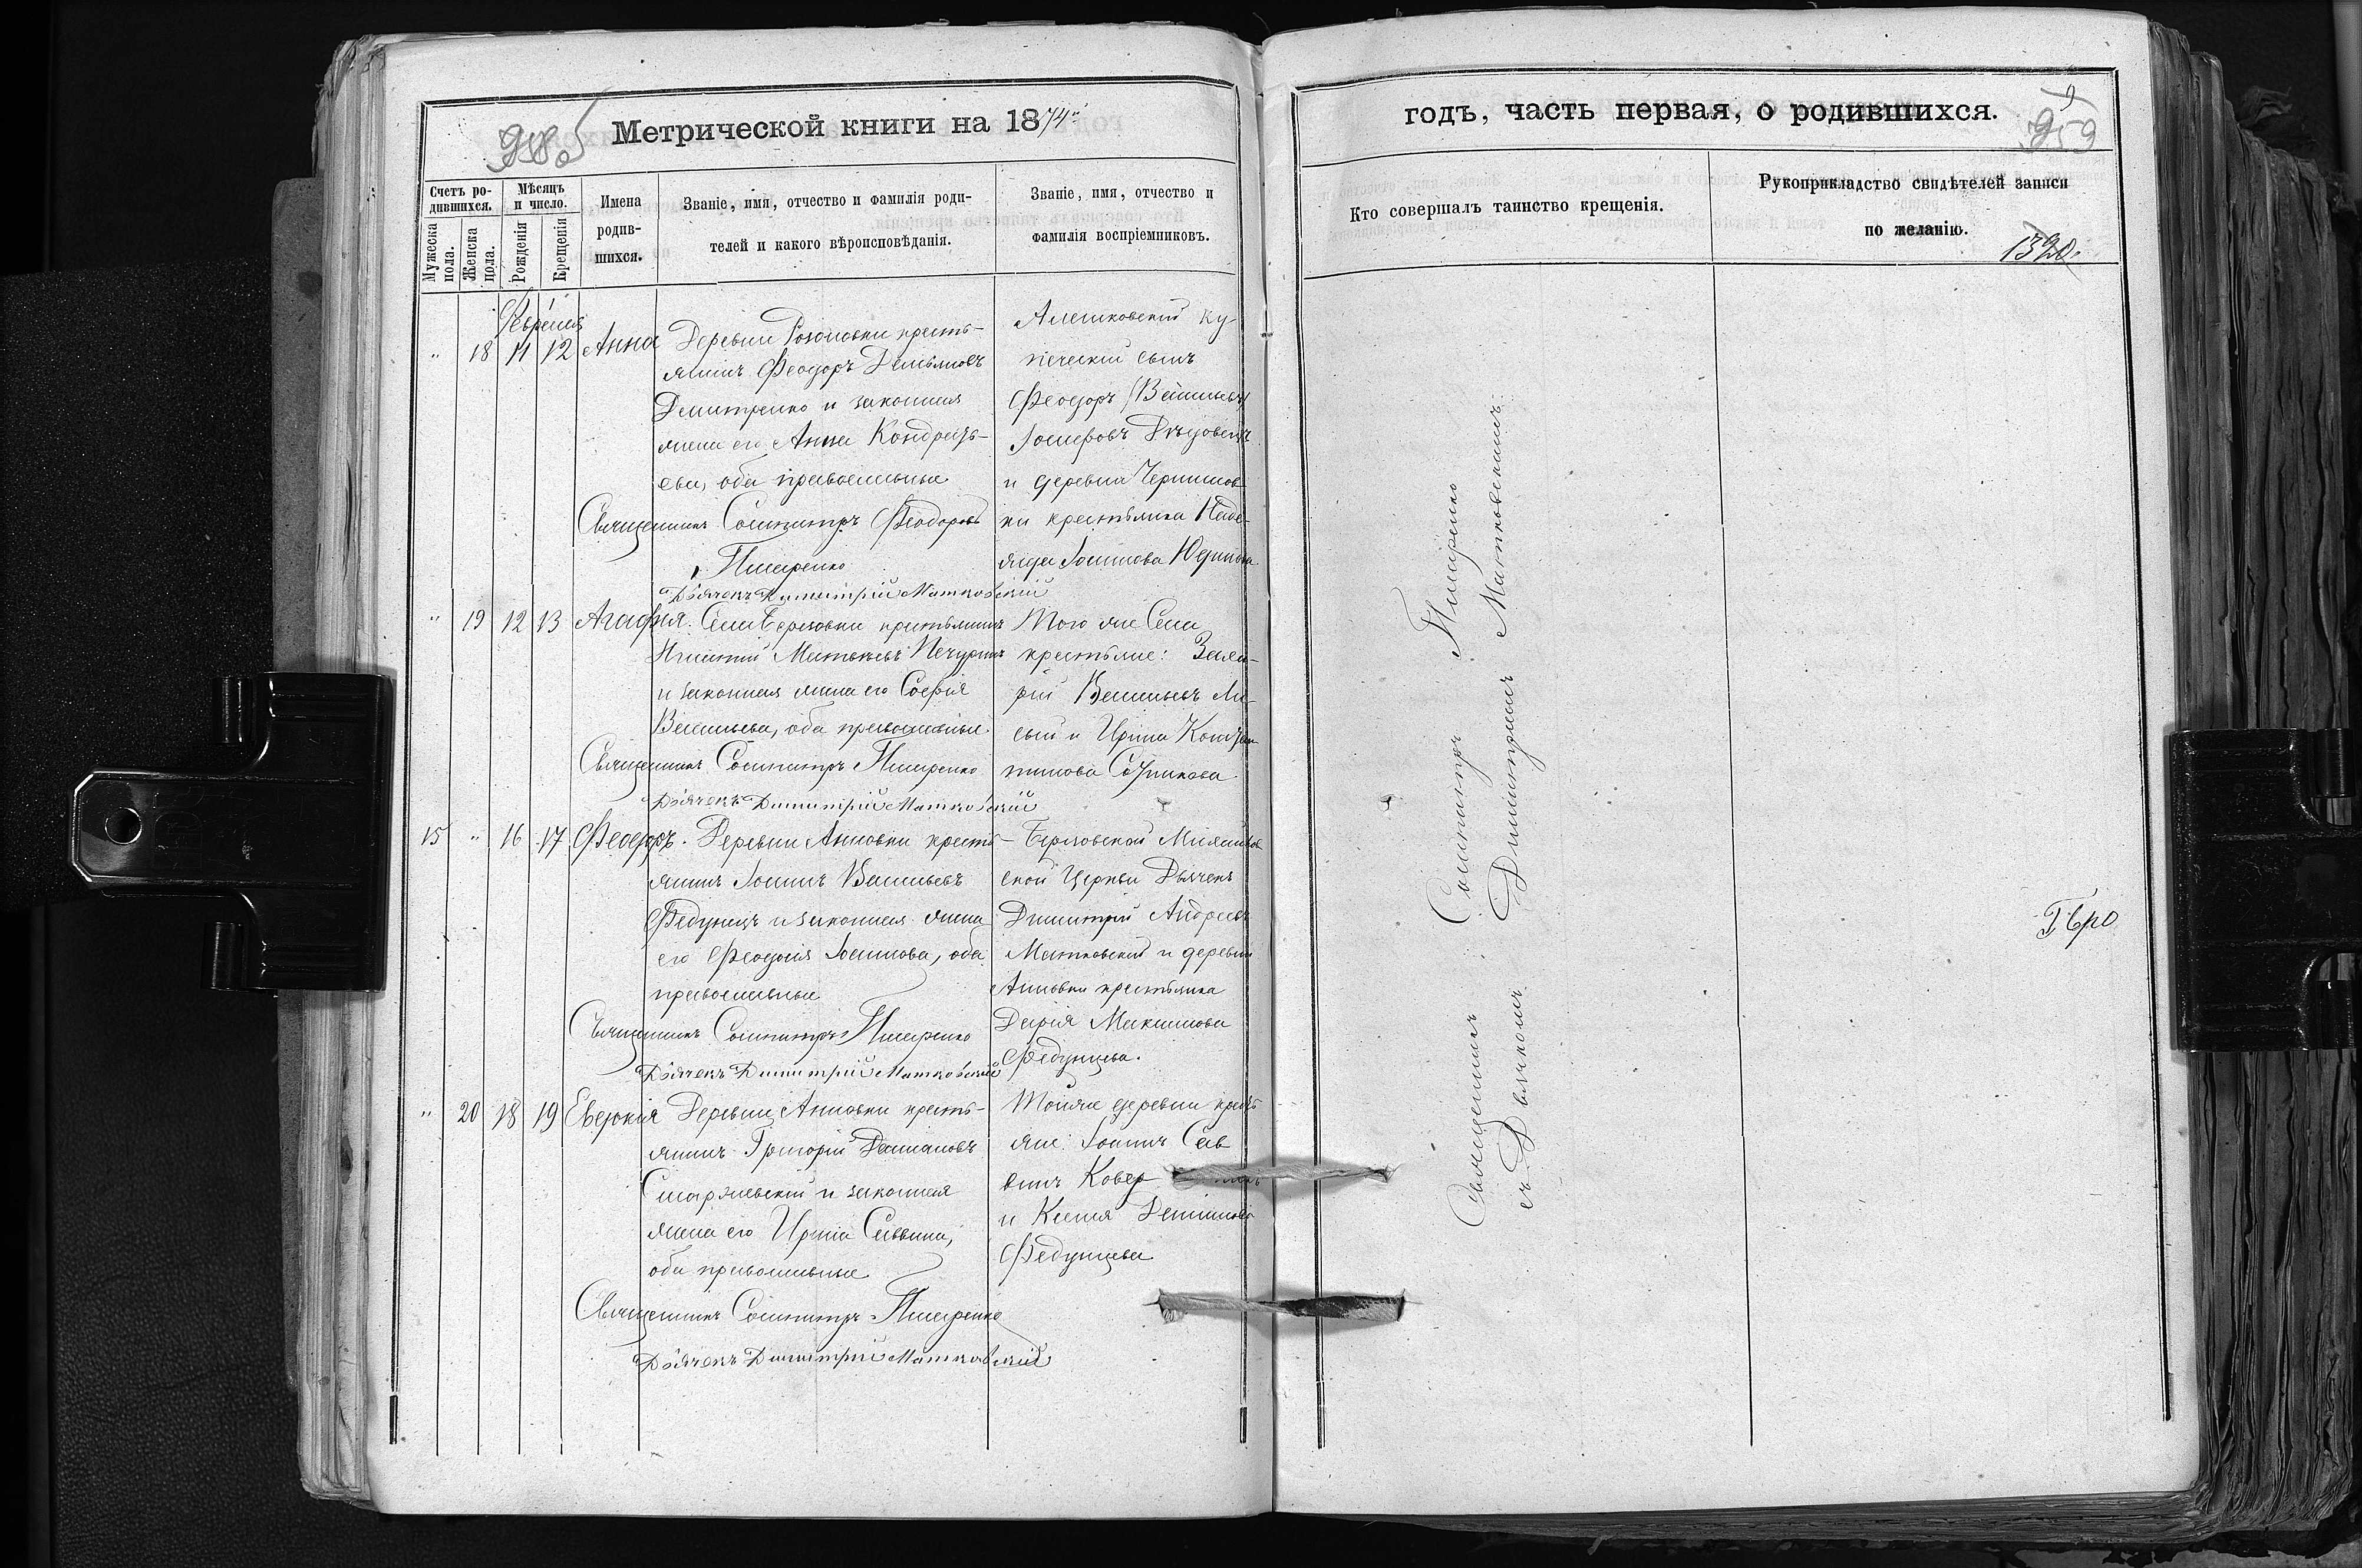 Метрической книги на 1874й
Счетъ родившихся.
Мужеска пола.
Женска пола.
Мѣсяцъ и число.
Рожденія
Крещенія
Имена родившихся.
Званіе, имя, отчество и фамилія родителей и какого вѣроисповѣданія.
Званіе, имя, отчество и фамилія воспріемниковъ.
Февраля
" 18 11 12 Анна
Деревни кресть-
янинъ Феодоръ Демьяновъ
Дмитренко и законная
жена его Анна Кондрать-
ева, оба православные
Священникъ Сосипатръ Феодоровъ
Писаренко
Дьячекъ Димитрій Матковскій
Алешковскій ку-
печескій сынъ
Феодоръ (Васильевъ)
Іосифовъ
и деревни
ки крестьянка Наде-
жда Іоаннова
" 19 12 13 Агафия.
Села Березовки крестьянинъ
Матвѣевъ
и законная жена его Софія
Васильева, оба православные.
Священникъ Сосипатръ Писаренко
Дьячекъ Димитрій Матковскій
Того же Села
крестьяне:
Васильевъ Ли-
сый и Ирина Констан
тинова
15 " 16 17 Феодоръ.
Деревни Анновки кресть-
янинъ Іоаннъ Васильевъ
Федунецъ и законная жена
его Феодосія Іоаннова, оба
православные
Священникъ Сосипатръ Писаренко
Дьячекъ Димитрій Матковскій
Березовской
ской Церкви Дьячекъ
Димитрій Андреевъ
Матковскій и деревни
Анновки крестьянка
Дарія Максимова
Федунцева.
" 20 18 19 Евдокія
Деревни Анновки кресть-
янинъ Григорій
и законная
жена его Ирина Саввина,
оба православные
Священникъ Сосипатръ Писаренко
Дьячекъ Димитрій Матковскій
Тойже деревни кресть
яне: Іоаннъ Сав
винъ
и Ксенія
Федунцева
годъ, часть первая, о родившихся.
959
Кто совершалъ таинство крещенія.
Рукоприкладство свидѣтелей записи по желанію.
1320.
Священникъ Сосипатръ Писаренко
съ Дьячкомъ Димитріемъ Матковскимъ.